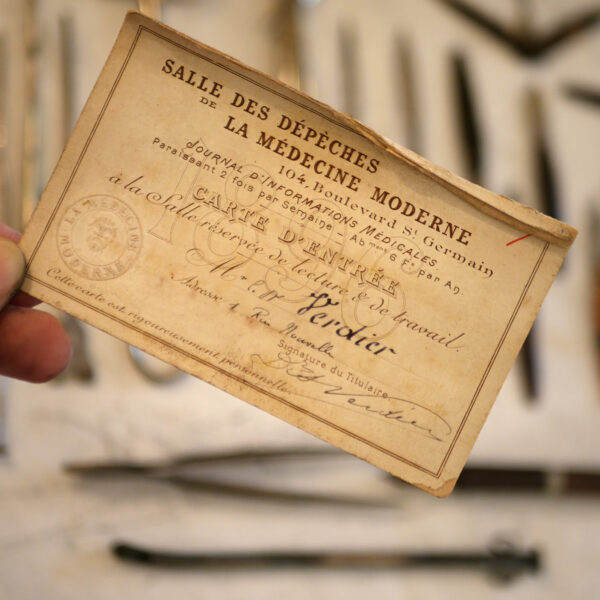 SALLE DES DÉPÊCHES
DE
LA MÉDECINE MODERNE
104, Boulevard St Germain
JOURNAL D'INFORMATIONS MÉDICALES
Paraissant 2 fois par Semaine - Abment 6 Fr par An
1896
CARTE D'ENTRÉE
à la Salle réservée de lecture & de travail.
Mr Verdier
Adresse 1 Rue Nouvelle
Signature du Titulaire
Verdier
Cette carte est rigoureusement personnelle.
LA MÉDECINE
MODERNE